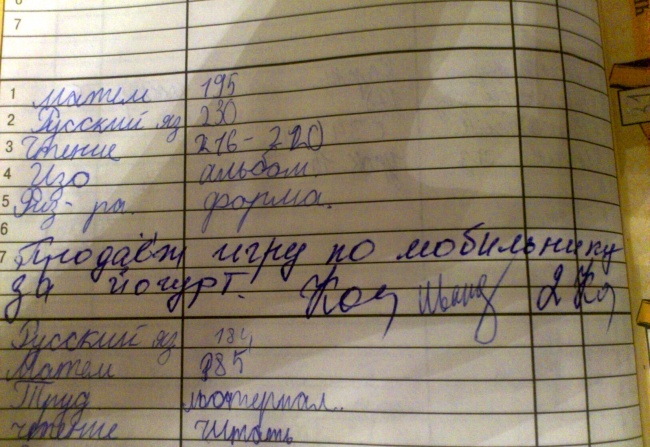 6
7
1 матем 195
2 Русский яз 230
3 Чтение 216-220
4 Изо альбом.
5 Физ-ра. форма.
6
7 Продаём игру по мобильнику
за йогурт. 2
Русский яз 184
Матем 985
Труд материал..
чтение читать